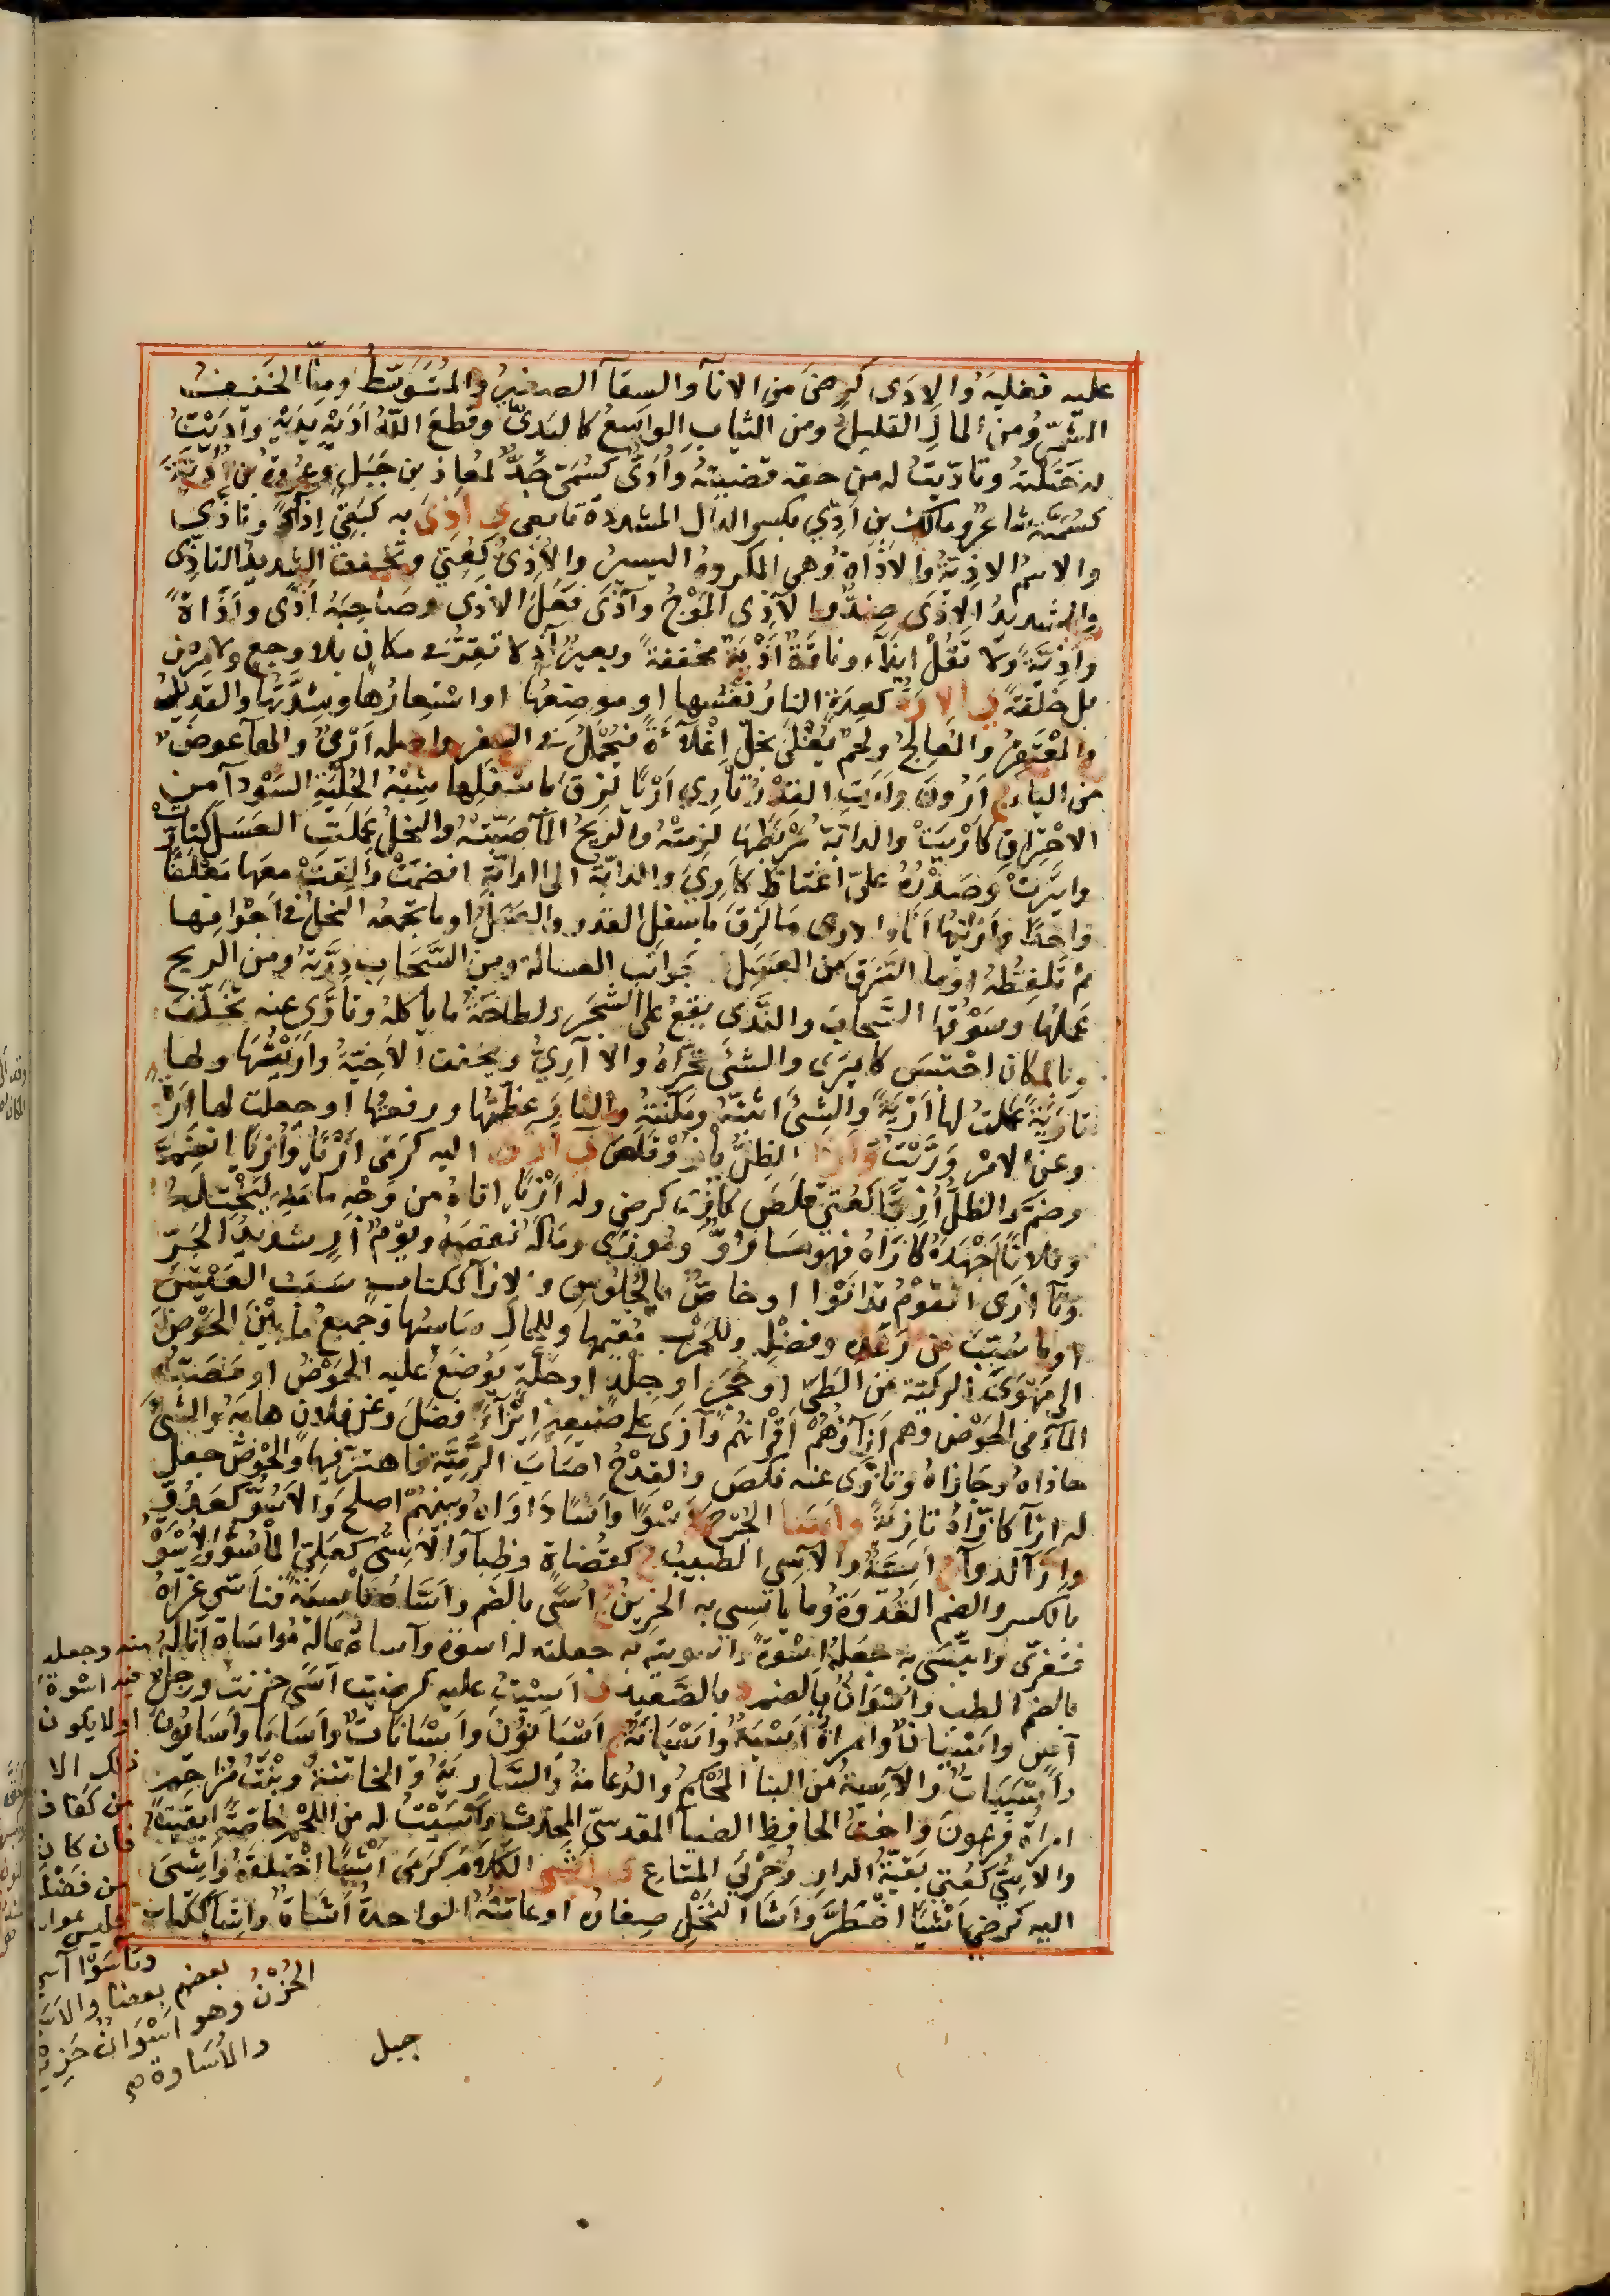 عليه فغلبه والادى كرضى من الانآ والسقآ الصغير والمتوسط ومنا الخفيف
المشمر ومن المال القليل ومن الثياب الواسع كاليدى وقطع الله اديه يديه واديت
له ختلته وتاديت له من حقه قضيته وادى كسمى جد لمعاذ بن جبل وعروة بن ادية
كسمية شاعر ومالك بن ادى بكسر الدال المشددة تابعى ى اذى به كبقى اذى وتاذى
والاسم الاذية والاذاة وهى المكروه اليسير والاذى كغنى ويخفف الشديد التاذى
والشديد الاذى ضد والاذى الموج وآذى فعل الاذى وصاحبه اذى واذاة
واذية ولا تقل ايذآء وناقة اذية مخففة وبعير اذ لا تقر فى مكان بلا وجع ولا مرض
بل خلقة ى الارة كعدة النار نفسها او موضعها او استعارها وشدتها والقديد
والمعتقر والمعالج ولحم يغلى بخل اغلآءة فيحمل فى السفر واصله ارى والهآ عوض
من اليا ج ارون وارت القدر تارى اريا لزق باسفلها شبه الجلبة السودآ من
الاحتراق كاريت والدابة مربطها لزمته والريح المآ صبته والنحل عملت العسل كتارت
وايترت وصدره على اغتاظ كارى والدابة الى الدابة انضمت والفت معها معلفا
واحدا واريتها انا والارى ما لزق باسفل القدر والعسل او ما تجمعه النحل فى اجوافها
ثم تلفظه او ما التزق من العسل جوانب العسالة ومن السحاب درته ومن الريح
عملها وسوقها السحاب والندى يقع على الشجر ولطاخة ما ياكله وتارى عنه تخلف
وبالمكان احتبس كايترى والشئ تحراه والآرى ويخفف الاخية واريتها ولها
تارية عملت لها ارية والشئ اثبته ومكنته والنار عظمتها ورفعتها او جعلت لها ارة
وعن الامر وريت و ازا الظل يازو قلص ى ازى اليه كرمى ازيا وازيا انضم
وضم والظل ازيا كعتى قلص كازى كرضى وله ازيا اتاه من وجه مامنه ليختله
وفلانا جهده كآزاه فهو مسارو وموزى وماله نقصه ويوم از شديد الحر
وتآزى القوم تدانوا او خاص بالجلوس والازآ ككتاب سبب العيش
او ما سبب من رغده وفضله وللحرب مقيمها وللمال سايسها وجميع ما بين الحوض
الى مهوى الركية من الطى او حجر او جلد او جلة يوضع عليه الحوض او مصب
المآء فى الحوض وهم ازآؤهم اقرانهم وآزى على صنيعه ايزآء افضل وعن فلان هابه والشئ
حاذاه وجازاه وتازى عنه نكص والقدح اصاب الرمية فاهتز فيها والحوض جعل
له ازآ كازاه تازية و اسا الجرح اسوا واسا داواه وبينهم اصلح والاسو كعدو
وازآ الدوآ ج آسية والآسى الطبيب ج كقضاة وظبآ والاسى كعلى الماسو والاسوة
بالكسر والضم القدوة وما ياتسى به الحزين ج اسى بالضم واساه تاسية فتاسى عزاه
فتعزى وايتسى به جعله اسوة واسوته به جعلته له اسوة وآساه بماله مواساة اناله منه وجعله
بالضم الطب واسوان بالضم د بالصعيد ى اسيت عليه كرضيت اسى حزنت ورجل
آس واسيان وامراة اسية واسيانة ج اسيانون واسيانات واسايا واسايون
واسييات والآسية من البنا المحكم والدعامة والسارية والخاتنة وبنت مزاحم
امراة فرعون واخت الحافظ الضيا المقدسى المحدث واسيت له من اللحم خاصة ابقيت
والاسى كعتى بقية الدار وخرثى المتاع ى اشى الكلام كرمى اشيا اختلقه واشى
اليه كرضى اشيا اضطر واشا النخل صغاره او عامته الواحدة اشاة واشا ككتاب
فيه اسوة
اولا يكون
ذلك الا
من كفاف
فان كان
من فضلة
فليس بمواساة
وتاسوا آسى
بعضهم بعضا والاسى
الحزن وهو اسوان حزين
والاساوة
جبل